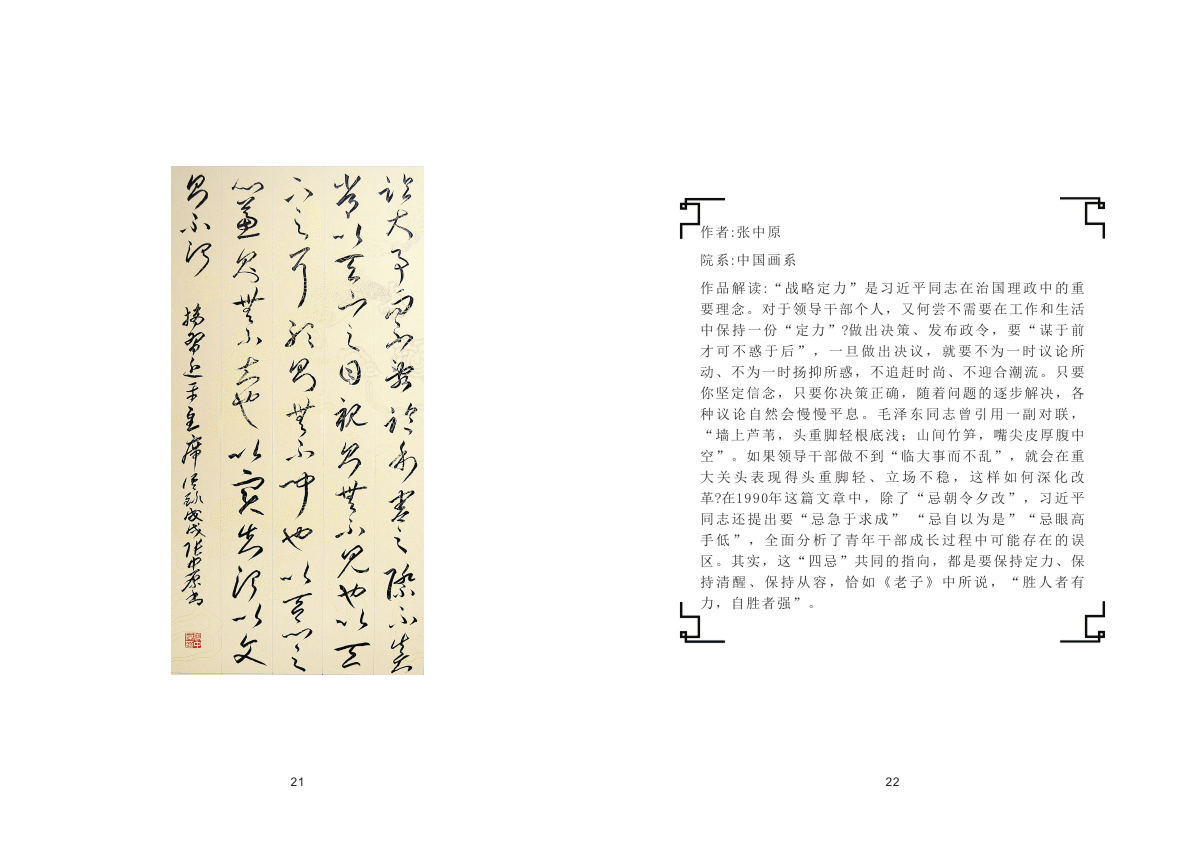 臨大事而不亂臨利害之際不失
常以天下之目視則無不見也以天
下之耳聽則無不聞也以天下之
心慮則無不知也以實則治以文
則不治
摘習近平主席語錄戊戌張中原書
作者:张中原
院系:中国画系
作品解读:“战略定力”是习近平同志在治国理政中的重
要理念。对于领导干部个人，又何尝不需要在工作和生活
中保持一份“定力”?做出决策、发布政令，要“谋于前
才可不惑于后”，一旦做出决议，就要不为一时议论所
动、不为一时扬抑所惑，不追赶时尚、不迎合潮流。只要
你坚定信念，只要你决策正确，随着问题的逐步解决，各
种议论自然会慢慢平息。毛泽东同志曾引用一副对联，
“墙上芦苇，头重脚轻根底浅；山间竹笋，嘴尖皮厚腹中
空”。如果领导干部做不到“临大事而不乱”，就会在重
大关头表现得头重脚轻、立场不稳，这样如何深化改
革?在1990年这篇文章中，除了“忌朝令夕改”，习近平
同志还提出要“忌急于求成” “忌自以为是”“忌眼高
手低”，全面分析了青年干部成长过程中可能存在的误
区。其实，这“四忌”共同的指向，都是要保持定力、保
持清醒、保持从容，恰如《老子》中所说，“胜人者有
力，自胜者强”。
21
22